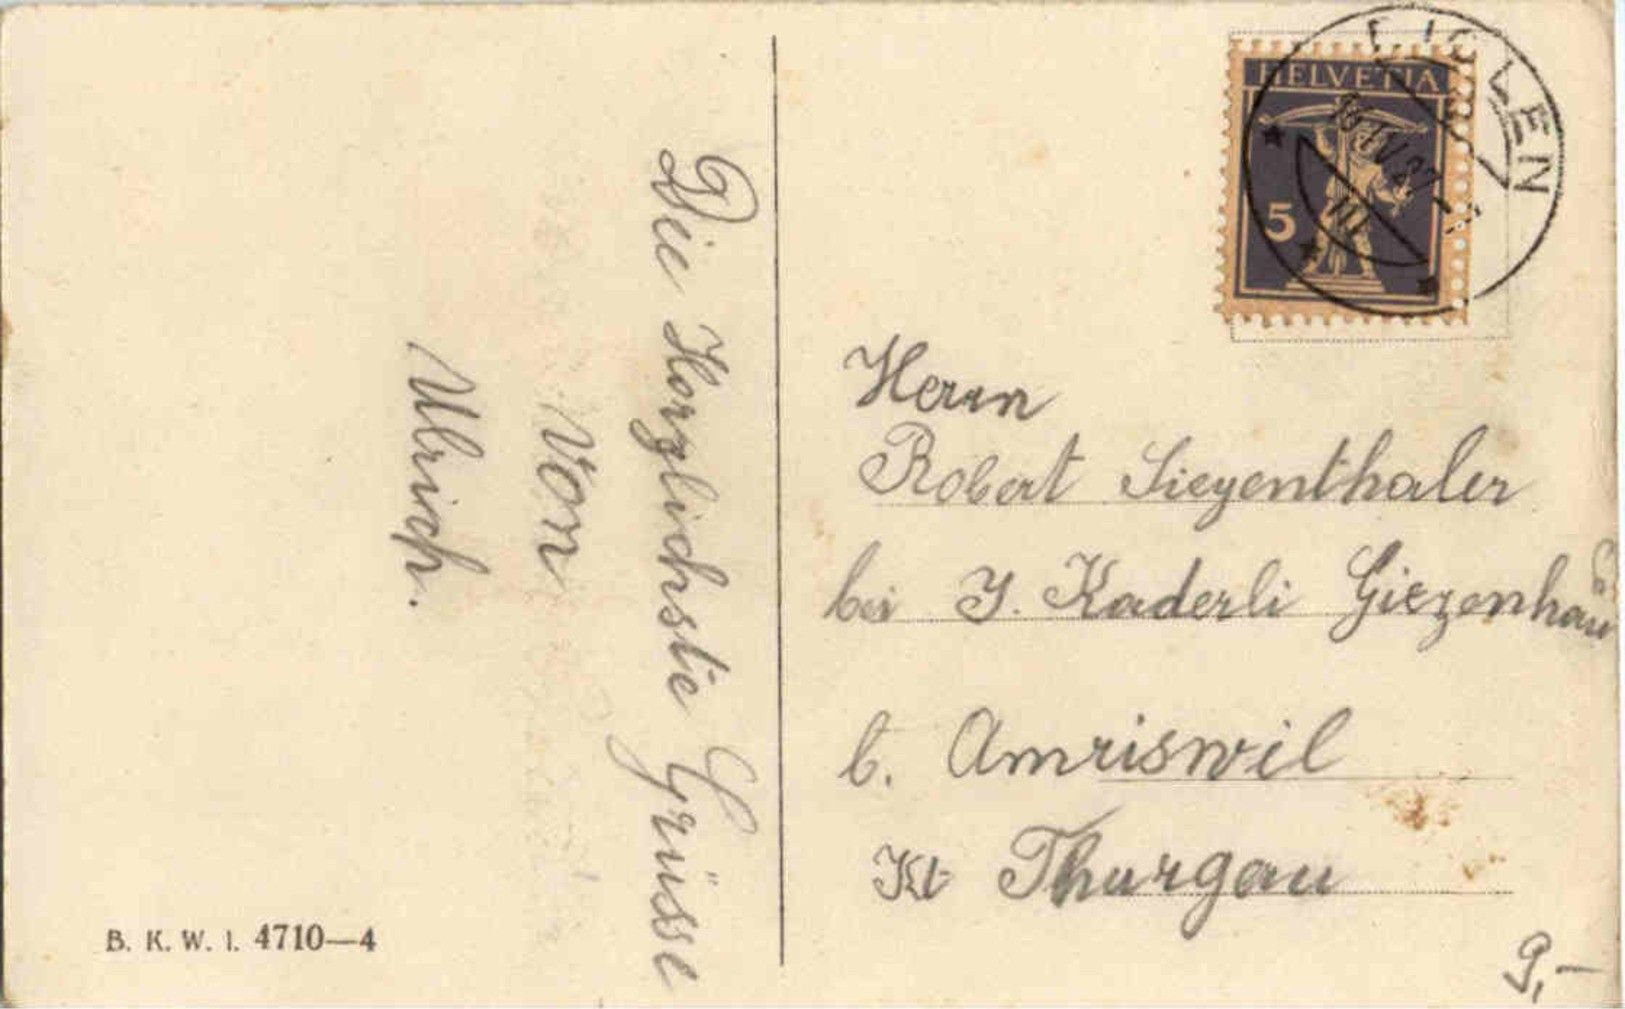 Die Herzlichste Grüsse
Von
Ulrich.
B. K. W. I. 4710—4
HELVETIA
5
16. IV. 27
III
Herrn
Robert Siegenthaler
bei J. Kaderli Giezenhaus
b. Amriswil
Kt Thurgau
9,-